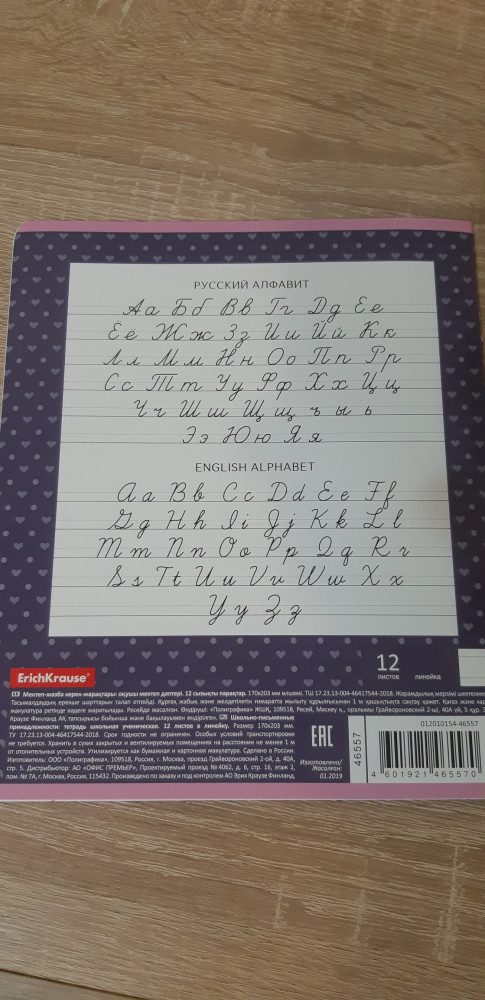 РУССКИЙ АЛФАВИТ
Аа Бб Вв Гг Дд Ее
Ёё Жж Зз Ии Йй Кк
Лл Мм Нн Оо Пп Рр
Сс Тт Уу Фф Хх Цц
Чч Шш Щщ ъ ы ь
Ээ Юю Яя
ENGLISH ALPHABET
Aa Bb Cc Dd Ee Ff
Gg Hh Ii Jj Kk Ll
Mm Nn Oo Pp Qq Rr
Ss Tt Uu Vv Ww Xx
Yy Zz
ErichKrause®
12
листов
линейка
Мектеп-жазба керек-жарақтары: оқушы мектеп дәптері. 12 сызықты парақтар. 170х203 мм өлшемі. ТШ 17.23.13-004-46417544-2018. Жарамдылық мерзімі шектелме
Тасымалдаудың ерекше шарттарын талап етпейді. Құрғақ жабық және желдетілетін ғимаратта жылыту құрылғысынан 1 м қашықтықта сақтау қажет. Қағаз және кар
макулатура ретінде кәдеге жаратылады. Ресейде жасалған. Өндіруші: «Полиграфика» ЖШҚ, 109518, Ресей, Мәскеу қ., орелымы Грайвороновский 2-ші, 40А үй, 5 құр. Э
Краузе Финланд АҚ тапсырысы бойынша және бақылауымен өндірілген. Школьно-письменные
принадлежности: тетрадь школьная ученическая. 12 листов в линейку. Размер 170х203 мм.
ТУ 17.23.13-004-46417544-2018. Срок годности не ограничен. Особых условий транспортировки
не требуется. Хранить в сухих закрытых и вентилируемых помещениях на расстоянии не менее 1 м
от отопительных устройств. Утилизируется как бумажная и картонная макулатура. Сделано в России.
Изготовитель: ООО «Полиграфика», 109518, Россия, г. Москва, проезд Грайвороновский 2-ой, д. 40А,
стр. 5. Дистрибьютор: АО «ОФИС ПРЕМЬЕР», Проектируемый проезд №4062, д. 6, стр. 16, этаж 2,
пом. №7А, г. Москва, Россия, 115432. Произведено по заказу и под контролем АО Эрих Краузе Финланд.
EAC
Изготовлено/
Жасалған:
01.2019
46557
012010154-46557
4 601921 465570